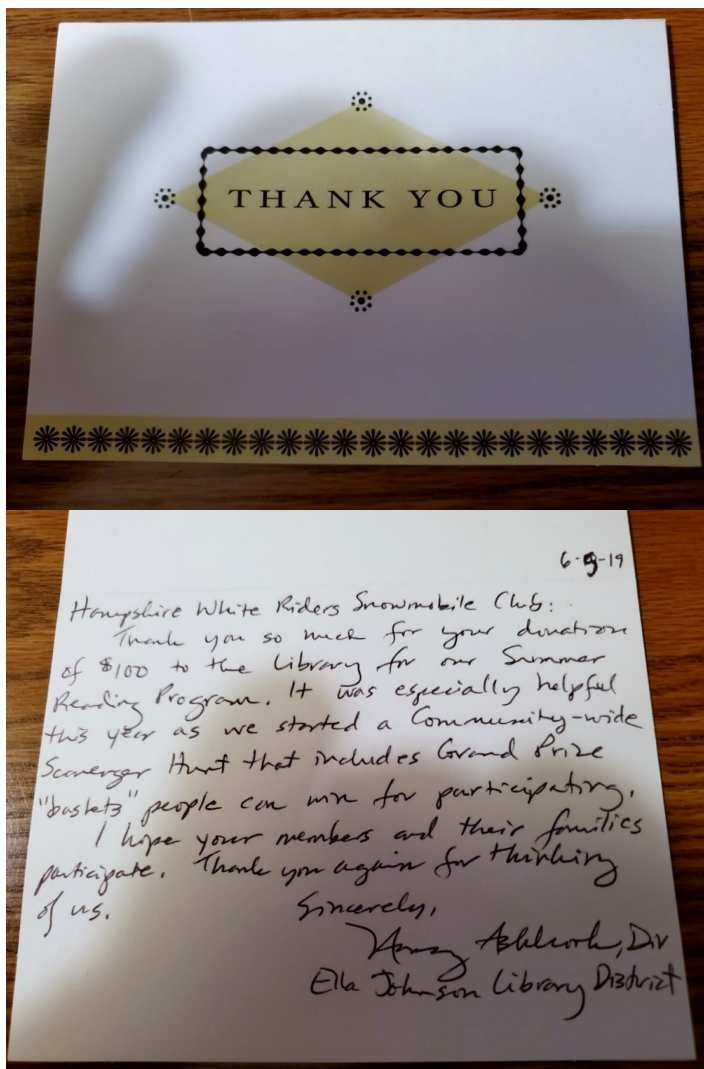 THANK YOU
6-5-19
Hampshire White Riders Snowmobile Club:
Thank you so much for your donation
of $100 to the Library for our Summer
Reading Program. It was especially helpful
this year as we started a Community-wide
Scavenger Hunt that includes Grand Prize
"baskets" people can win for participating.
I hope your members and their families
participate. Thank you again for thinking
of us.
Sincerely,
Dir
Ella Johnson Library District